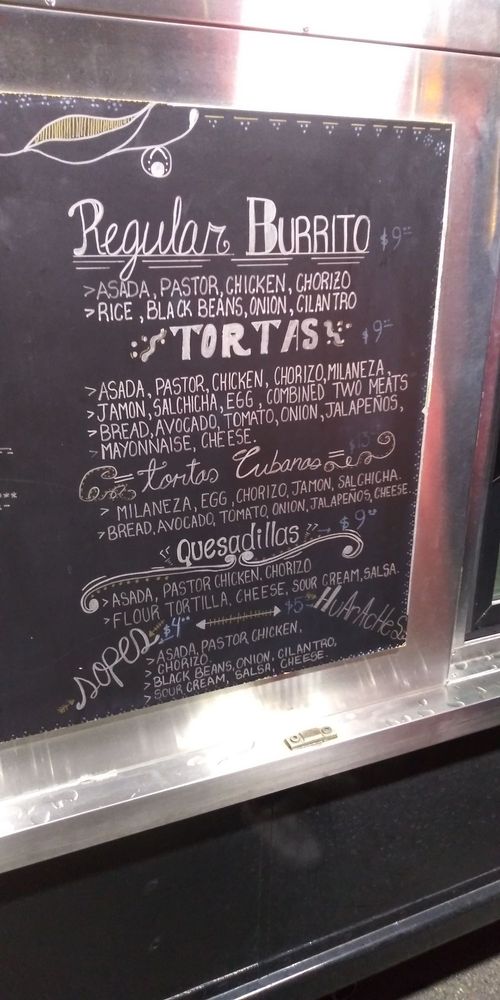 Regular BURRITO $9
>ASADA, PASTOR, CHICKEN, CHORIZO
>RICE, BLACK BEANS, ONION, CILANTRO
TORTAS $9
>ASADA, PASTOR, CHICKEN, CHORIZO, MILANEZA,
>JAMON, SALCHICHA, EGG, COMBINED TWO MEATS
>BREAD, AVOCADO, TOMATO, ONION, JALAPEÑOS,
>MAYONNAISE, CHEESE.
Tortas Cubanas
> MILANEZA, EGG, CHORIZO, JAMON, SALCHICHA.
>BREAD, AVOCADO, TOMATO, ONION, JALAPEÑOS, CHEESE.
Quesadillas $9
>ASADA, PASTOR CHICKEN, CHORIZO
>FLOUR TORTILLA, CHEESE, SOUR CREAM, SALSA.
sopes $4 $5 HuArAcHeS
>ASADA, PASTOR CHICKEN,
>CHORIZO
>BLACK BEANS, ONION, CILANTRO,
>SOUR CREAM, SALSA, CHEESE